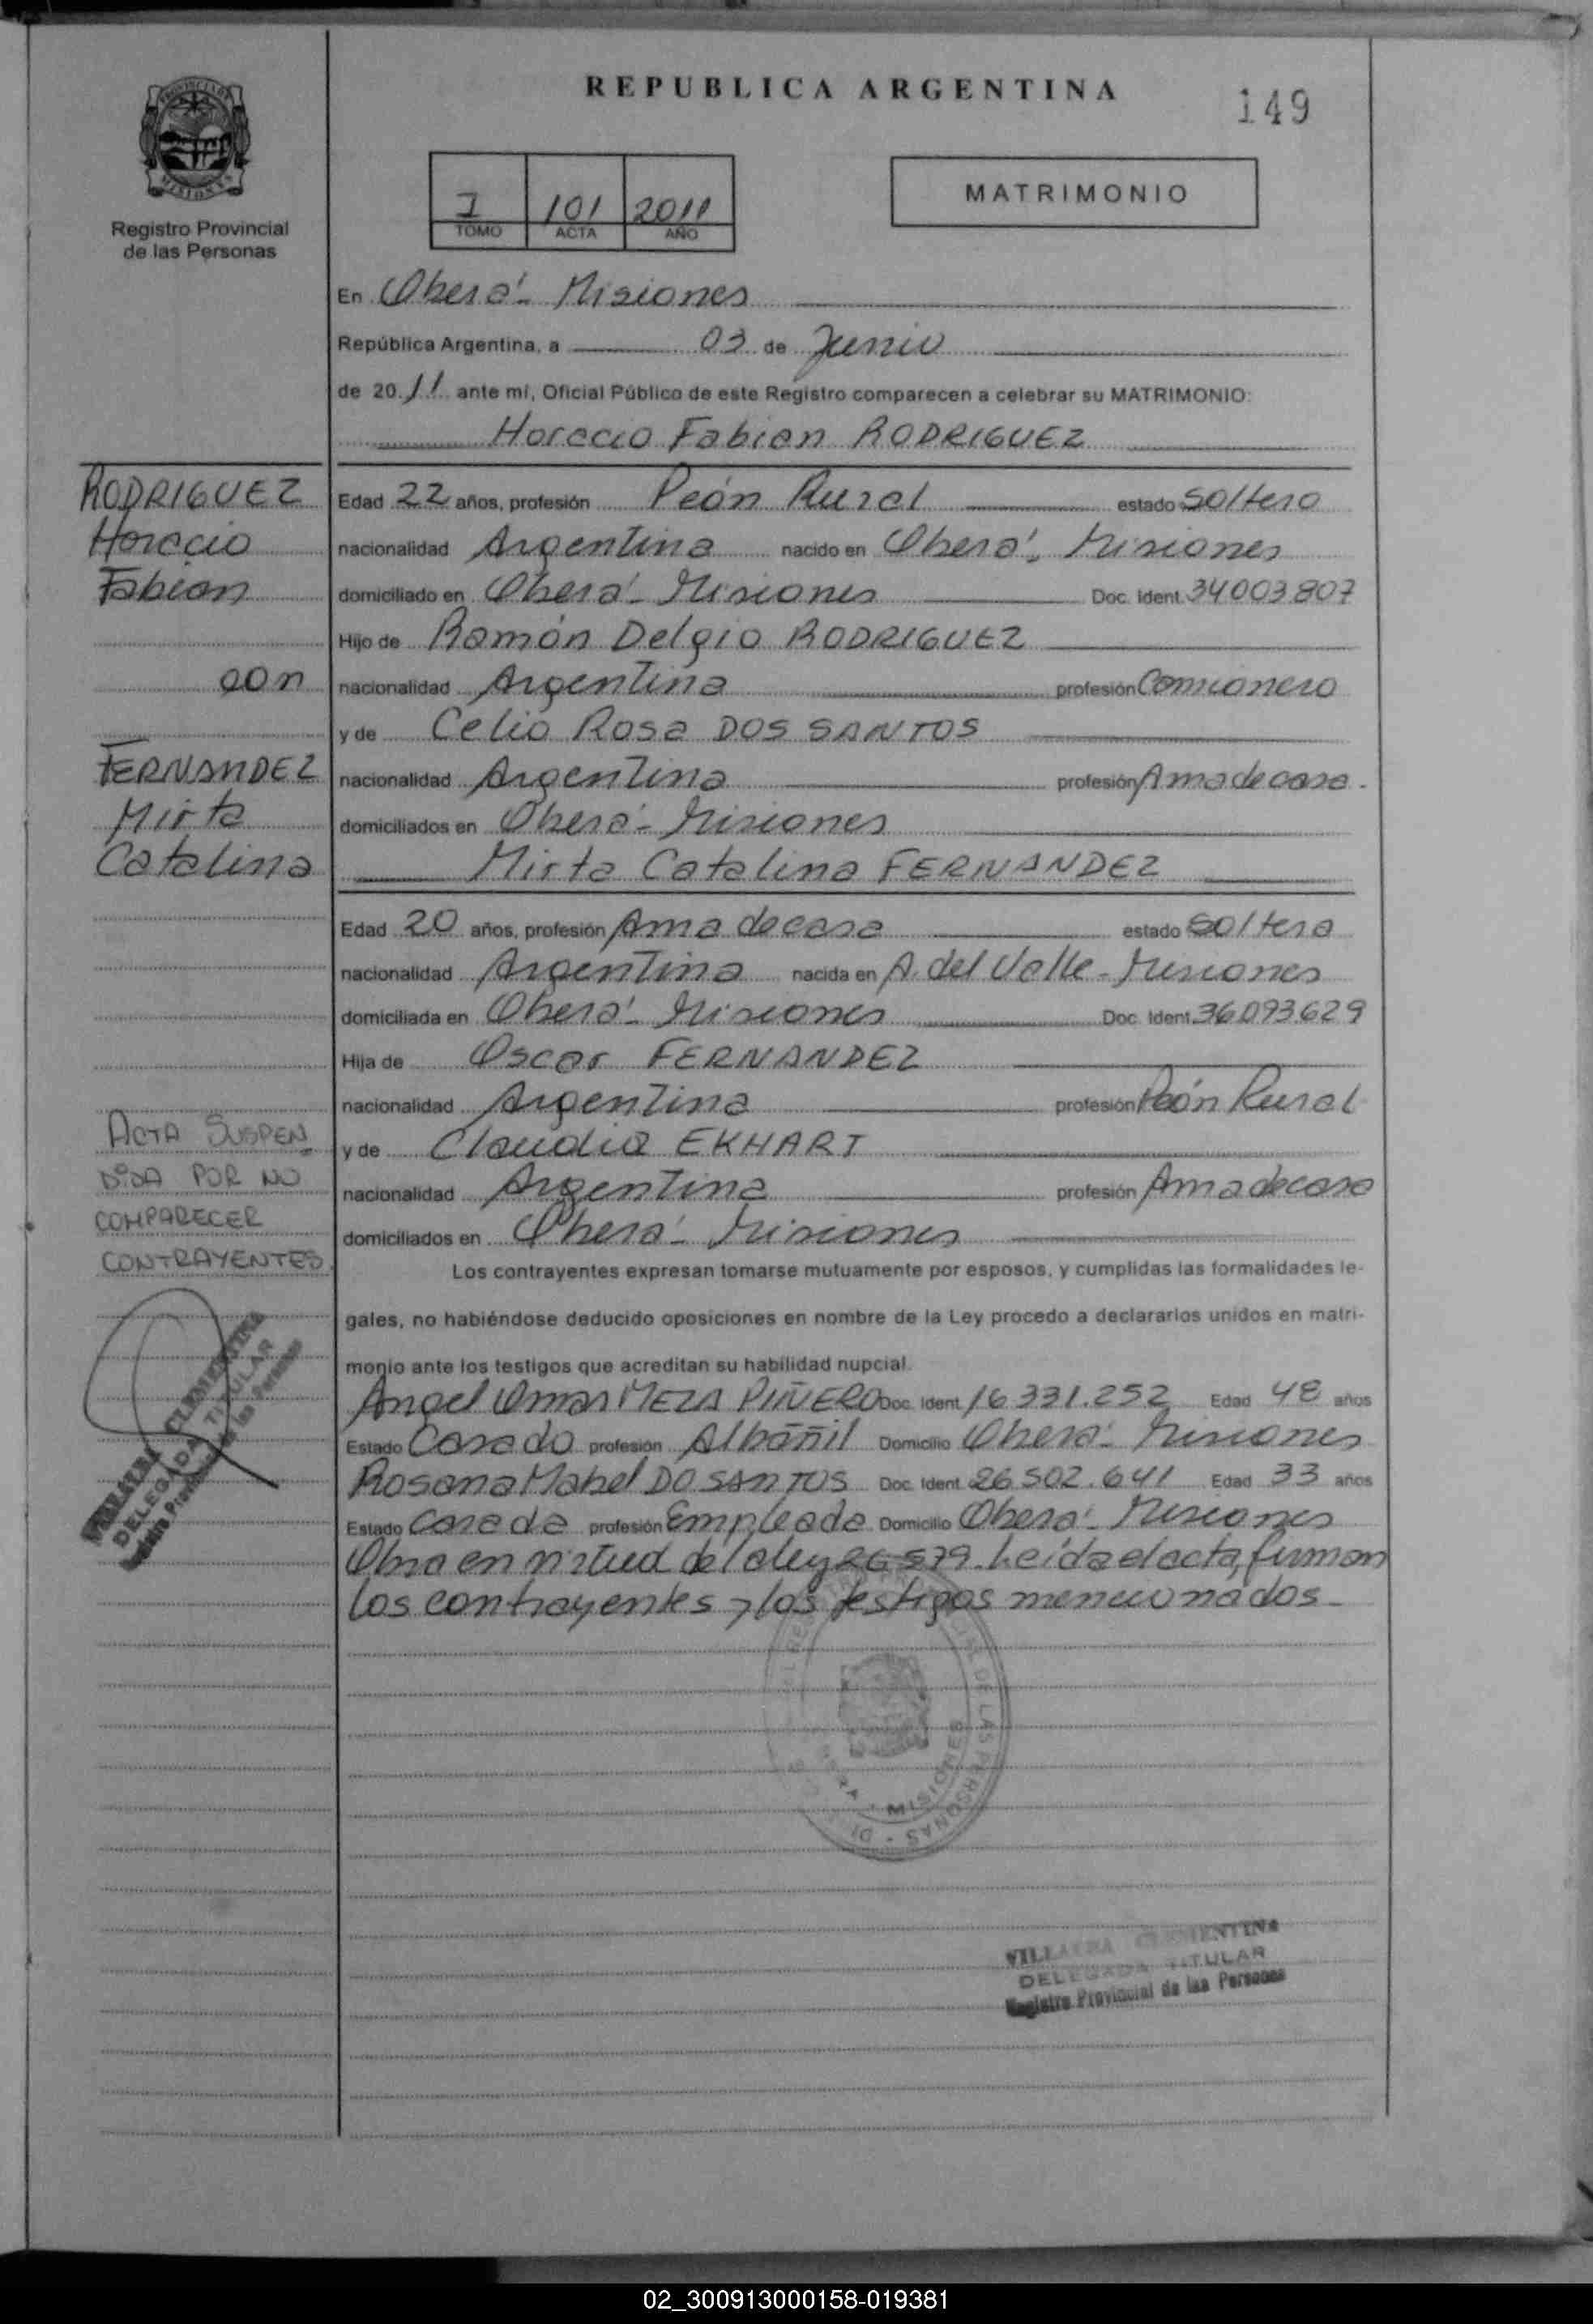 REPUBLICA ARGENTINA
149
PROVINCIA DE
MISIONES
Registro Provincial
de las Personas
1 101 2011
TOMO ACTA AÑO
MATRIMONIO
En Oberá - Misiones
República Argentina, a 03 de Junio
de 2011 ante mí, Oficial Público de este Registro comparecen a celebrar su MATRIMONIO:
Horacio Fabian RODRIGUEZ
RODRIGUEZ
Horacio
Fabian
con
FERNANDEZ
Mirta
Catalina
Edad 22 años, profesión Peón Rural estado Soltero
nacionalidad Argentina nacido en Oberá, Misiones
domiciliado en Oberá - Misiones Doc. Ident. 34003807
Hijo de Ramón Delgio RODRIGUEZ
nacionalidad Argentina profesión Camionero
y de Celia Rosa DOS SANTOS
nacionalidad Argentina profesión Ama de casa.
domiciliados en Oberá - Misiones
Mirta Catalina FERNANDEZ
Edad 20 años, profesión Ama de casa estado Soltera
nacionalidad Argentina nacida en A. del Valle - Misiones
domiciliada en Oberá - Misiones Doc. Ident. 36.093.629
Hija de Oscar FERNANDEZ
nacionalidad Argentina profesión Peón Rural
y de Claudia EKHART
nacionalidad Argentina profesión Ama de casa
domiciliados en Oberá - Misiones
ACTA SUSPEN
DIDA POR NO
COMPARECER
CONTRAYENTES.
Los contrayentes expresan tomarse mutuamente por esposos, y cumplidas las formalidades le-
gales, no habiéndose deducido oposiciones en nombre de la Ley procedo a declararlos unidos en matri-
monio ante los testigos que acreditan su habilidad nupcial.
Angel Omar MEZA PIÑERO Doc. Ident. 16.331.252 Edad 48 años
Estado Casado profesión Albañil Domicilio Oberá - Misiones
Rosana Mabel DO SANTOS Doc. Ident. 26.502.641 Edad 33 años
Estado Casada profesión Empleada Domicilio Oberá - Misiones
Obra en virtud de la ley 26579. Leída el acta, firman
los contrayentes y los testigos mencionados.
VILLALBA CLEMENTINA
DELEGADA TITULAR
Registro Provincial de las Personas
DE LAS PERSONAS
MISIONES
VILLALBA CLEMENTINA
DELEGADA TITULAR
Registro Provincial de las Personas
02_300913000158-019381